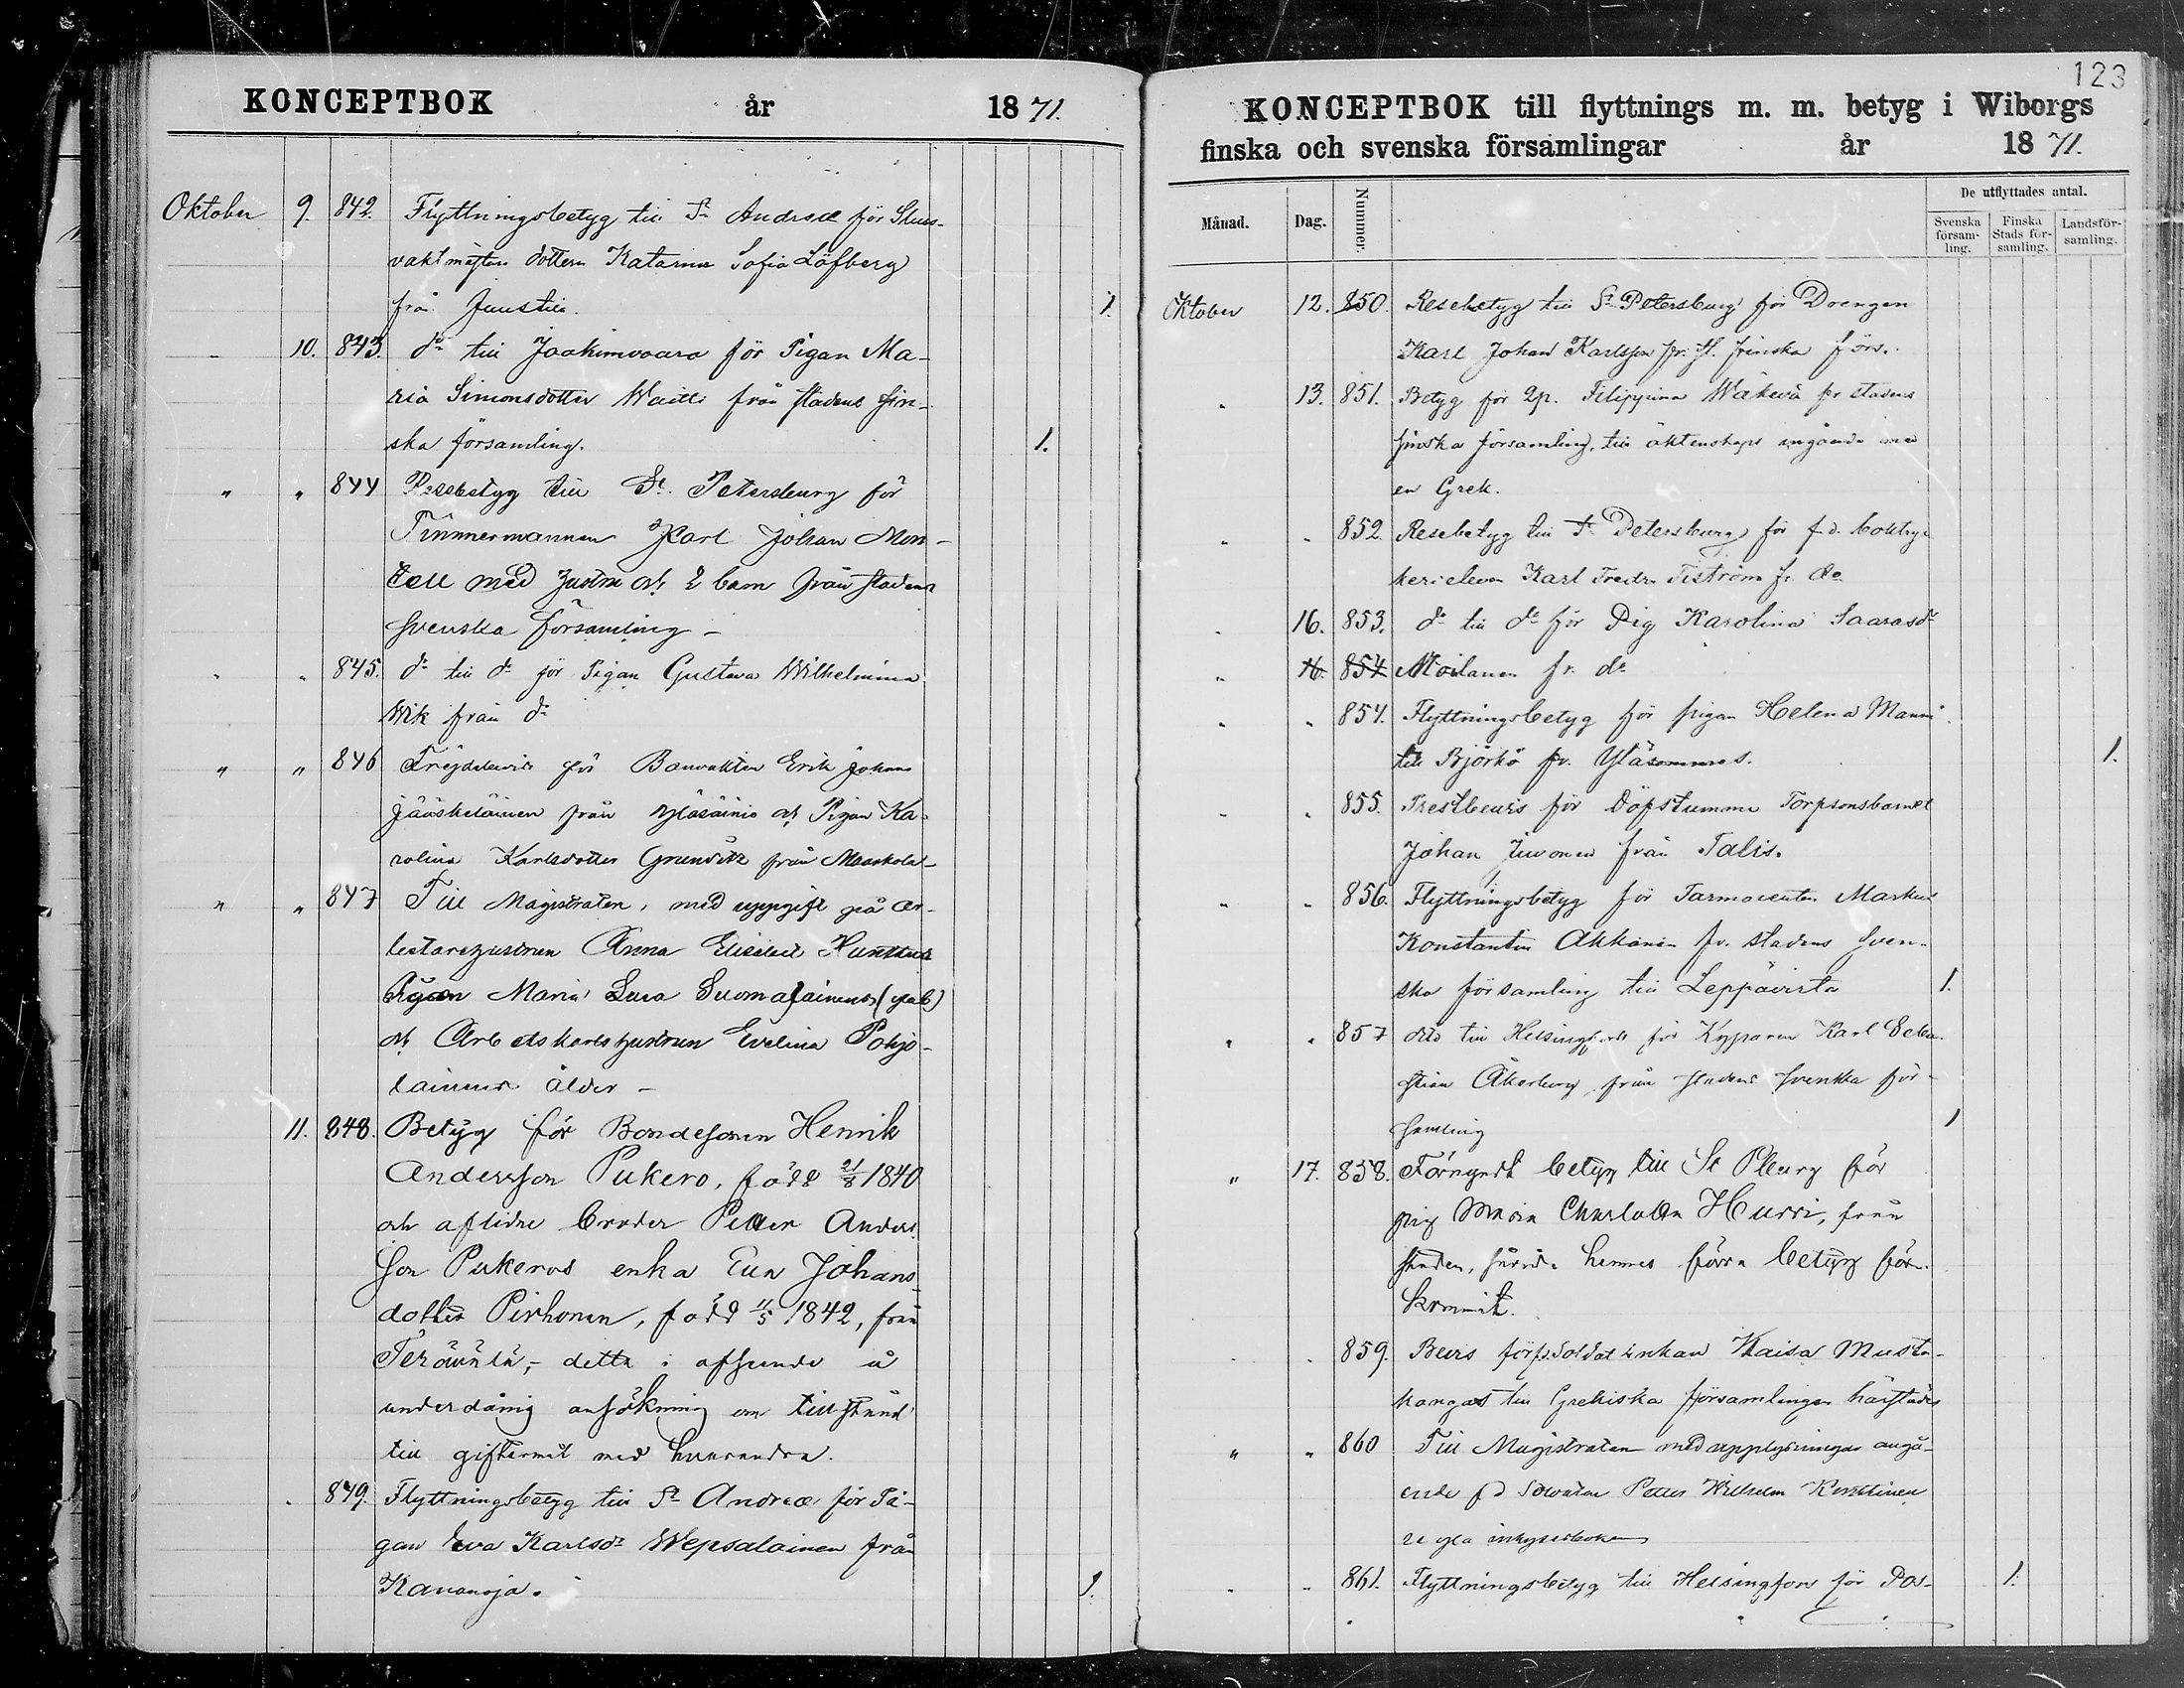 KONCEPTBOK år 1871.
Oktober 9. 842. Flyttningsbetyg till St Andreæ för Sluss-
vaktmästare dottern Katarina Sofia Löfberg
från Juustila. 1.
10. 843. do till Jaakimvaara för Pigan Ma-
ria Simonsdotter Waitti från stadens fin-
ska församling. 1.
" " 844 Resebetyg till St. Petersburg för
Timmermannen Karl Johan Mon-
tell med hustru och 2 barn från stadens
svenska församling –
" " 845. do till do för Pigan Gustava Wilhelmina
Wik från do
" " 846 Frejdebevis för Banvakten Erik Johans
Jääskeläinen från Yläsäinio och Pigan Ka-
rolina Karlsdotter från Maaskola-
" " 847 Till Magistraten, med uppgift på ar-
betarehustrun Anna Elisabet
Pigan Maria Lovisa Suomalainens
och Arbetskarlshustrun Evelina Pohjo-
lainens ålder –
11. 848. Betyg för Bondesonen Henrik
Andersson Pukero, född 21/8 1840
och aflidne broder Petter Anders
son Pukeros enka Eva Johans-
dotter Pirhonen, född 11/5 1842, från
Terävälä, – detta i afseende å
underdånig ansökning om tillstånd
till giftermål med hvarandra.
" 849. Flyttningsbetyg till St Andreæ för Pi-
gan Eva Karlsdr Wepsalainen från
Kavansja. 1.
123
KONCEPTBOK till flyttnings m. m. betyg i Wiborgs
finska och svenska församlingar år 1871.
Månad. Dag. Nummer. De utflyttades antal.
Svenska försam-ling. Finska Stads för-samling. Landsför-samling.
Oktober 12. 850. Resebetyg till St Petersburg för Drengen
Karl Johan Karlsson fr. st. finska förs.
" 13. 851. Betyg för Qp. Filippina Wäkevä fr stadens
finska församling, till äktenskaps ingående med
en Grek.
" " 852. Resebetyg till St Petersburg för f.d. boktryc
kerieleven Karl Fredr. Tiström fr. do
" 16. 853. do till do för Pig Karolina Saarasdr
" 16. 854 Moilanen fr. do
" " 854. Flyttningsbetyg för pigan Helena Manni
till Björkö fr. Yläsommes. 1.
" " 855. Prestbevis för döfstumme Torpsonsbarnet
Johan Juvonen från Talis.
" " 856. Flyttningsbetyg för Farmaceuten Markus
Konstantin Akkanen fr. stadens sven-
ska församling till Leppävirta 1.
" " 857 dito till Helsingfors för Kyparen Karl Seba-
stian Åkerberg från stadens svenska för-
samling 1
" 17. 858. Förnyadt betyg till St Pburg för
pig Maria Charlotta Hurri, från
staden, sedan hennes förra betyg för-
kommit.
" " 859. Bevis för f.d. Soldat Enkan Kaisa Musta-
kangas till Grekiska församlingen härstädes
" " 860 Till Magistraten med upplysningar angå-
ende f d Soldaten Petter Wilhelm Konttinen
" " 861. Flyttningsbetyg till Helsingfors för Pos- 1.